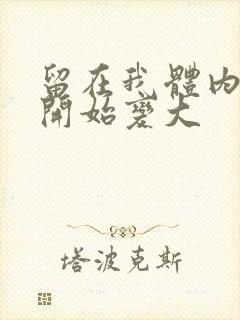 留在我體內
開始變大
塔波克斯